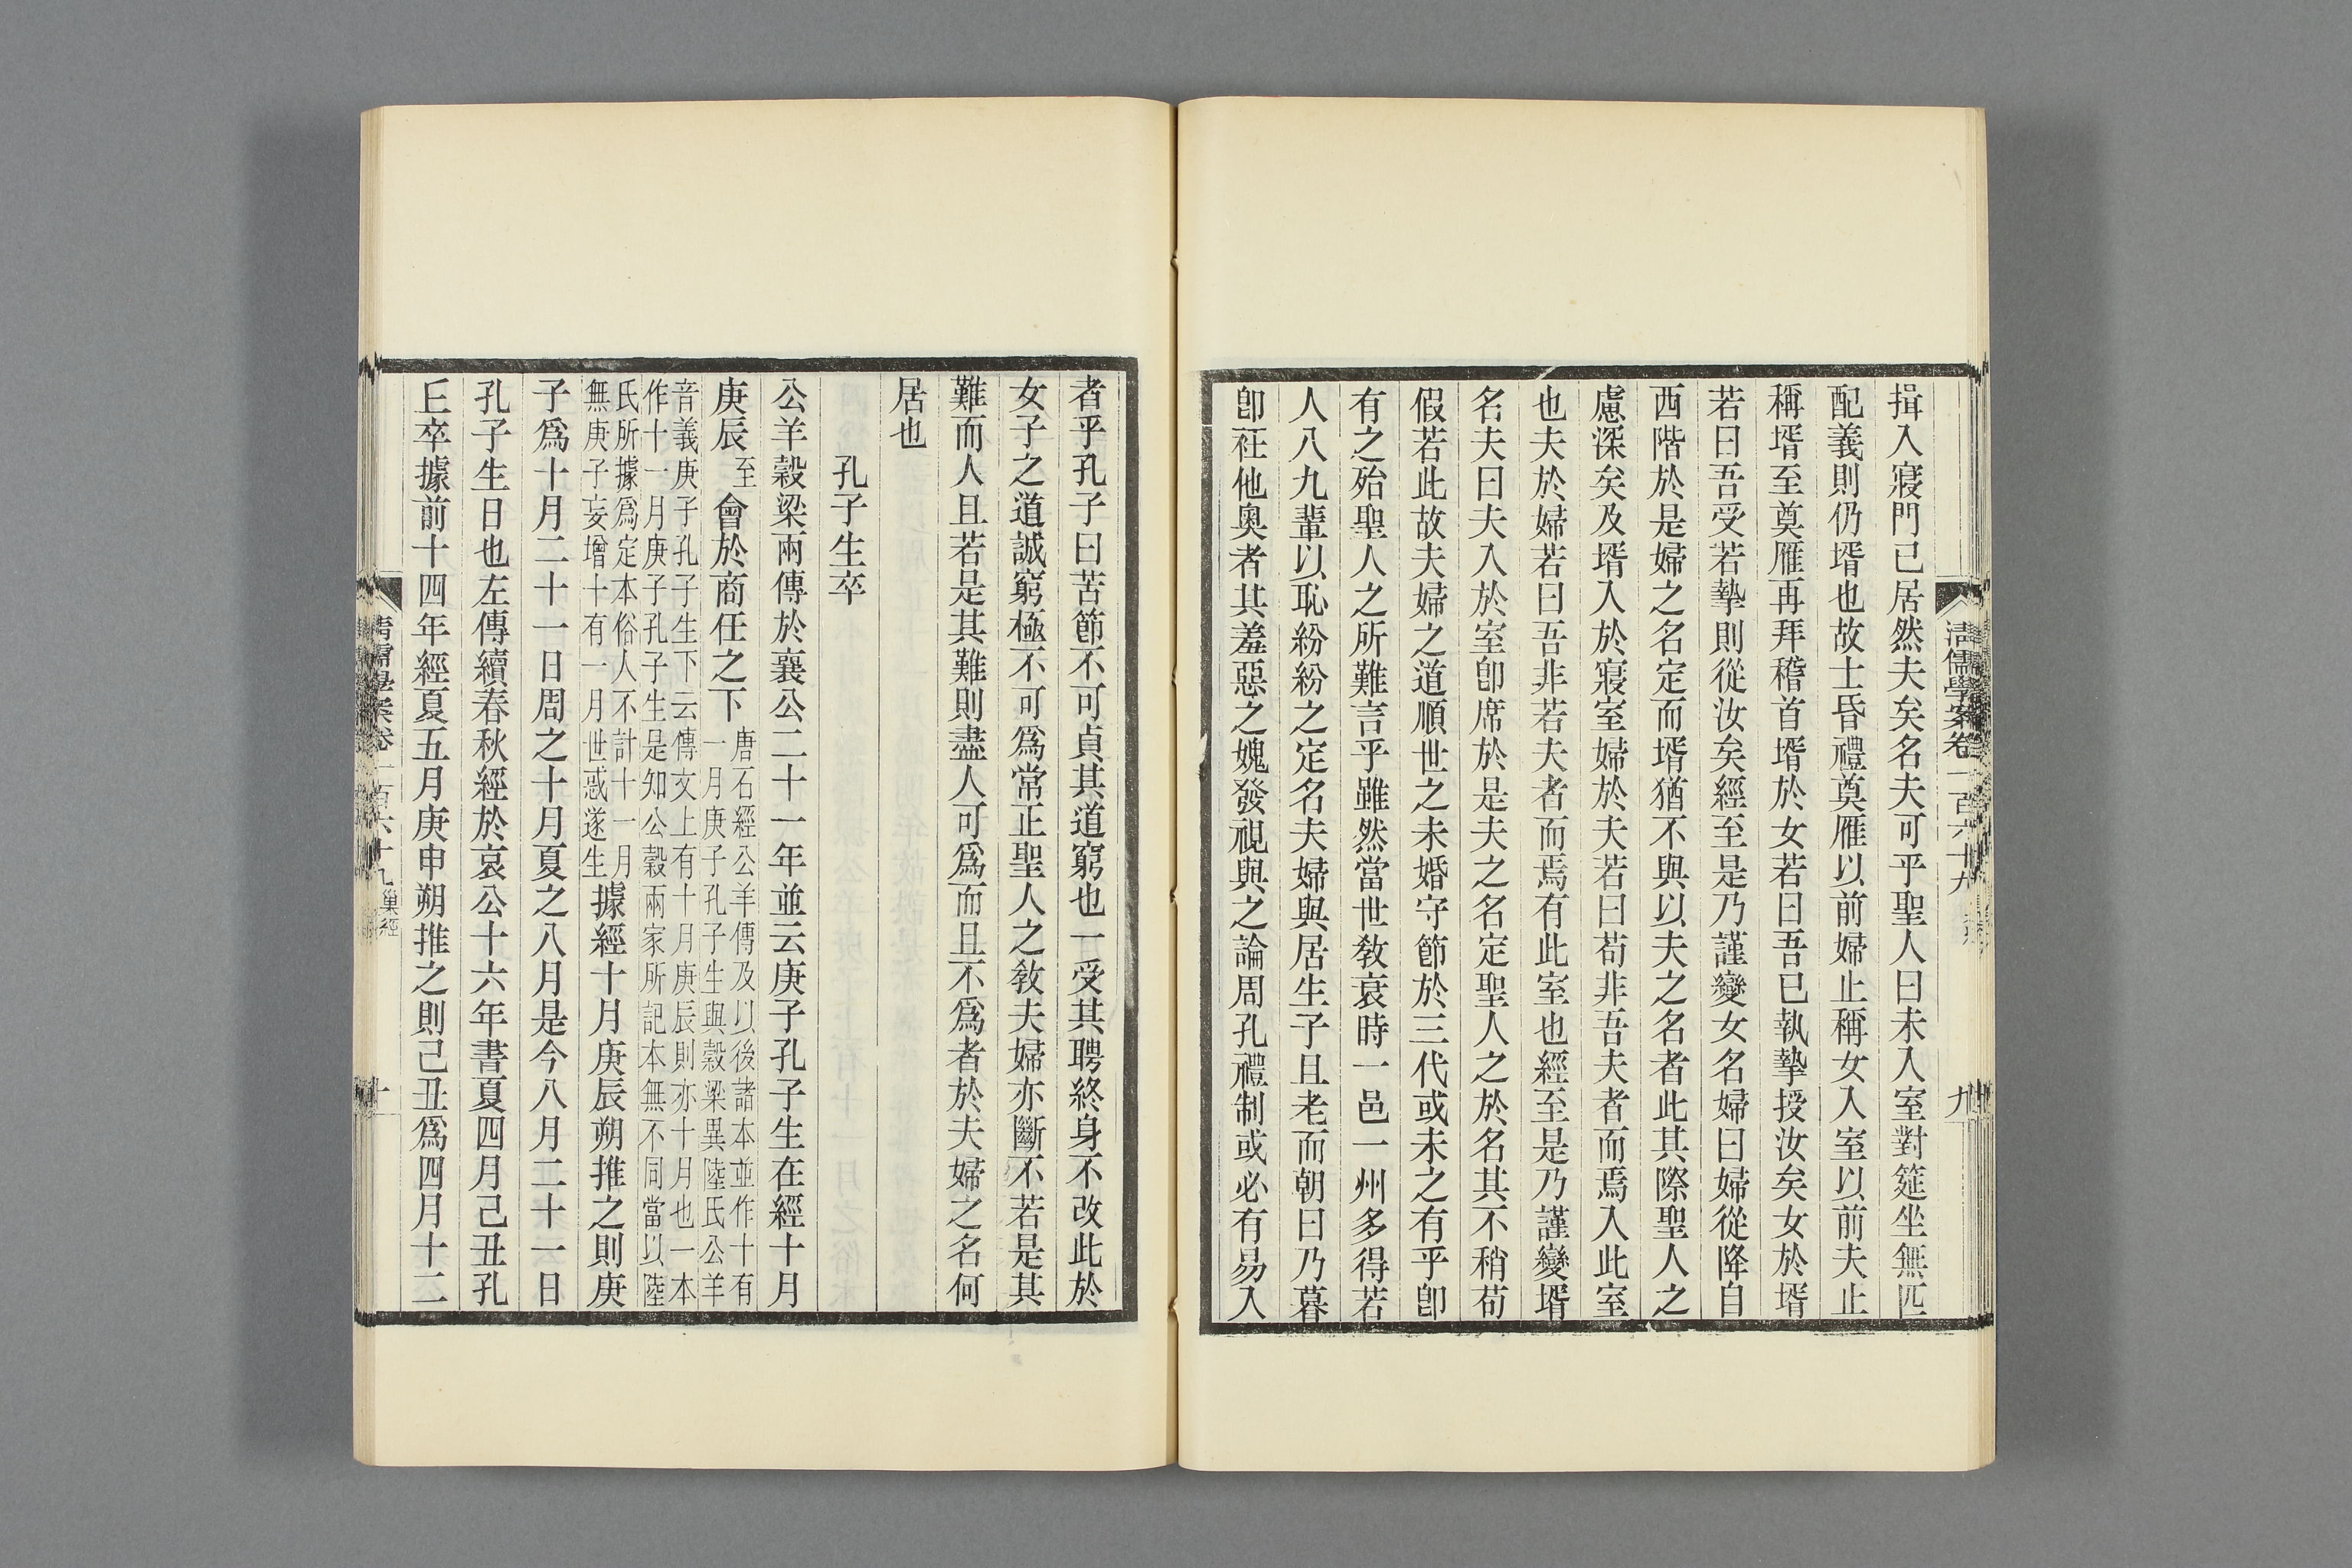 清儒學案卷一百六十九
九
揖入寢門已居然夫矣名夫可乎聖人曰未入室對筵坐無匹
配義則仍壻也故士昏禮奠雁以前婦止稱女入室以前夫止
稱壻至奠雁再拜稽首壻於女若曰吾已執摯授汝矣女於壻
若曰吾受若摯則從汝矣經至是乃謹變女名婦曰婦從降自
西階於是婦之名定而壻猶不與以夫之名者此其際聖人之
慮深矣及壻入於寢室婦於夫若曰苟非吾夫者而焉入此室
也夫於婦若曰吾非若夫者而焉有此室也經至是乃謹變壻
名夫曰夫入於室卽席於是夫之名定聖人之於名其不稍苟
假若此故夫婦之道順世之未婚守節於三代或未之有乎卽
有之殆聖人之所難言乎雖然當世敎衰時一邑一州多得若
人八九輩以恥紛紛之定名夫婦與居生子且老而朝曰乃暮
卽衽他奧者其羞惡之媿發視與之論周孔禮制或必有易入
者乎孔子曰苦節不可貞其道窮也一受其聘終身不改此於
女子之道誠窮極不可爲常正聖人之敎夫婦亦斷不若是其
難而人且若是其難則盡人可爲而且不爲者於夫婦之名何
居也
孔子生卒
公羊穀梁兩傳於襄公二十一年並云庚子孔子生在經十月
庚辰至會於商任之下唐石經公羊傳及以後諸本並作十有
一月庚子孔子生與穀梁異陸氏公羊
音義庚子孔子生下云傳文上有十月庚辰則亦十月也一本
作十一月庚子孔子生是知公穀兩家所記本無不同當以陸
氏所據爲定本俗人不計十一月
無庚子妄增十有一月世惑遂生據經十月庚辰朔推之則庚
子爲十月二十一日周之十月夏之八月是今八月二十一日
孔子生日也左傳續春秋經於哀公十六年書夏四月己丑孔
丘卒據前十四年經夏五月庚申朔推之則己丑爲四月十二
清儒學案卷一百六十九 巢經
十